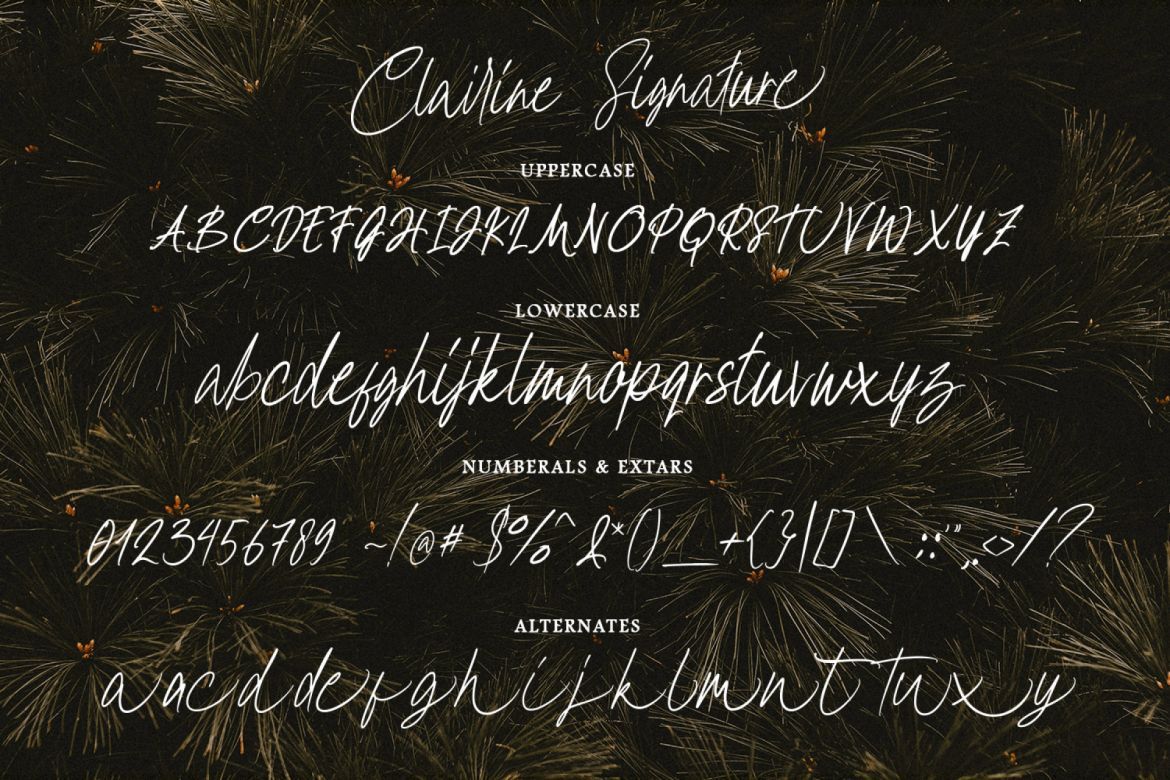 Clairine Signature
UPPERCASE
ABCDEFGHIJKLMNOPQRSTUVWXYZ
LOWERCASE
abcdefghijklmnopqrstuvwxyz
NUMBERALS & EXTARS
0123456789 ~!@# $%^&*()_+{}|[]\:;'",.<>/?
ALTERNATES
a a c d d e f g h i j k l m n t t u x y